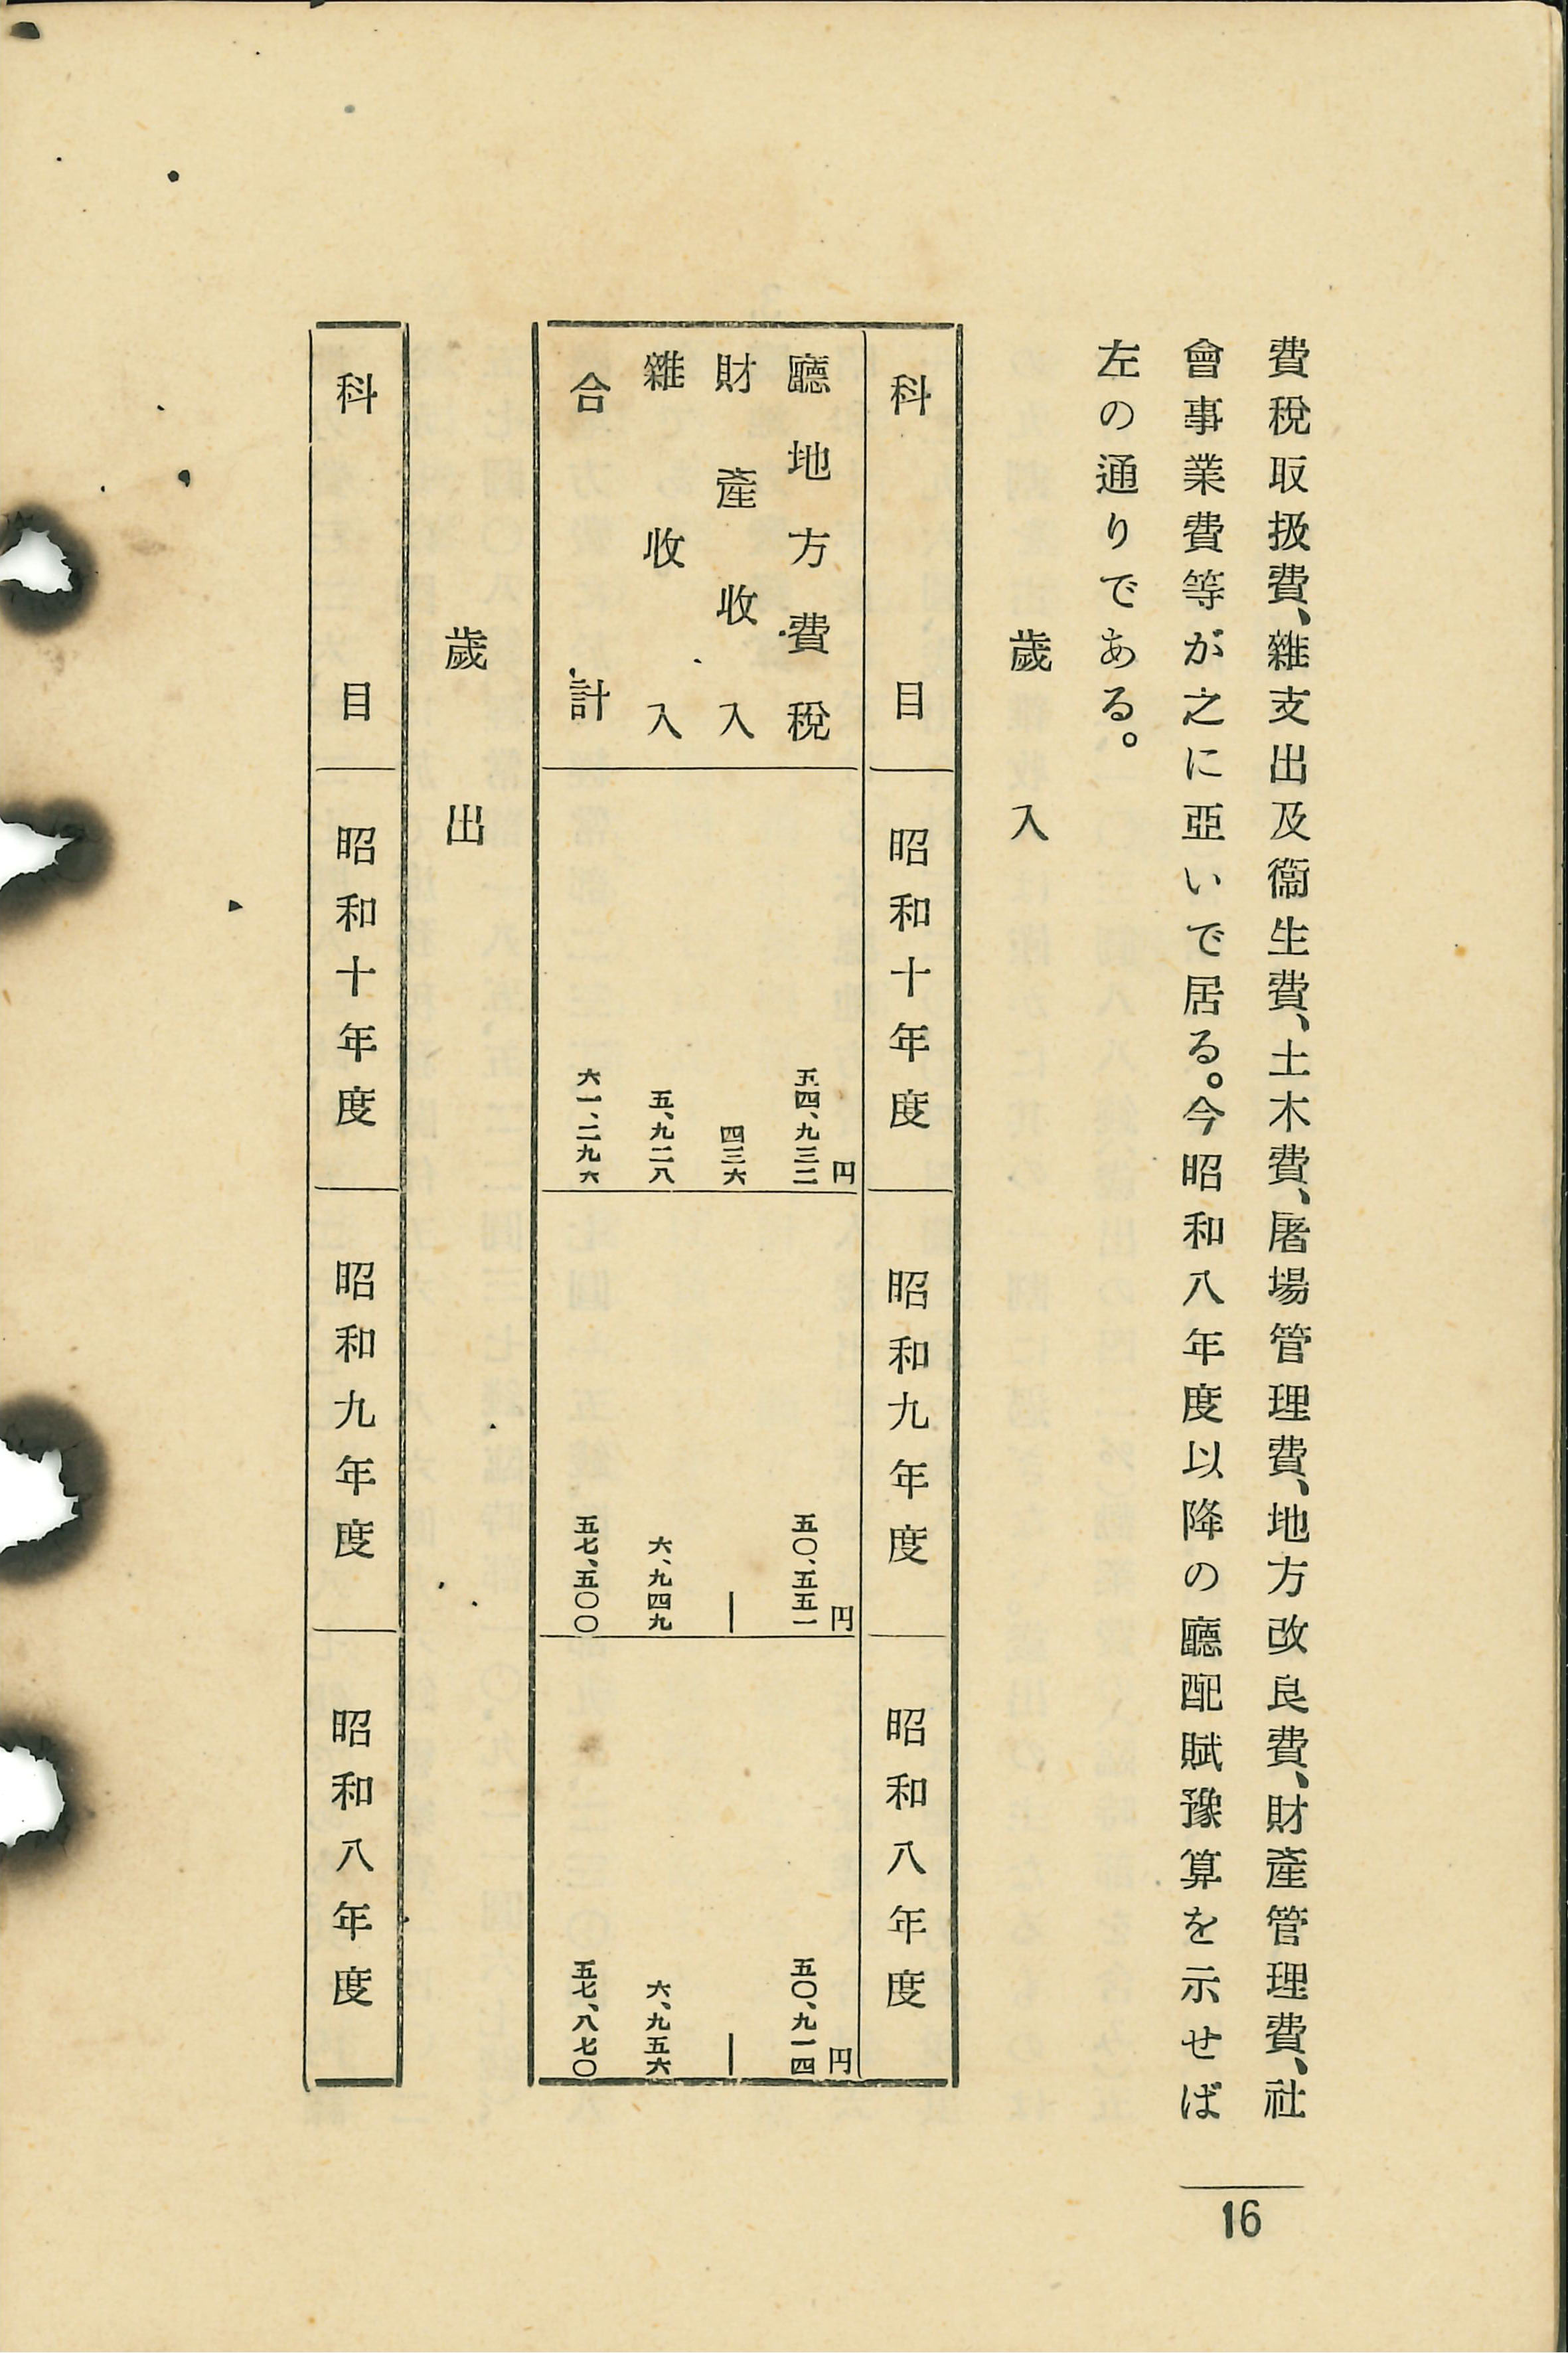 費稅取扱費、雜支出及衞生費、土木費、屠場管理費、地方改良費、財產管理費、社
會事業費等が之に亞いで居る。今昭和八年度以降の廳配賦豫算を示せば
左の通りである。
歲入
科目 昭和十年度 昭和九年度 昭和八年度
廳地方費稅 五四、九三二円 五〇、五五一円 五〇、九一四円
財產收入 四三六 — —
雜收入 五、九二八 六、九四九 六、九五六
合計 六一、二九六 五七、五〇〇 五七、八七〇
歲出
科目 昭和十年度 昭和九年度 昭和八年度
16